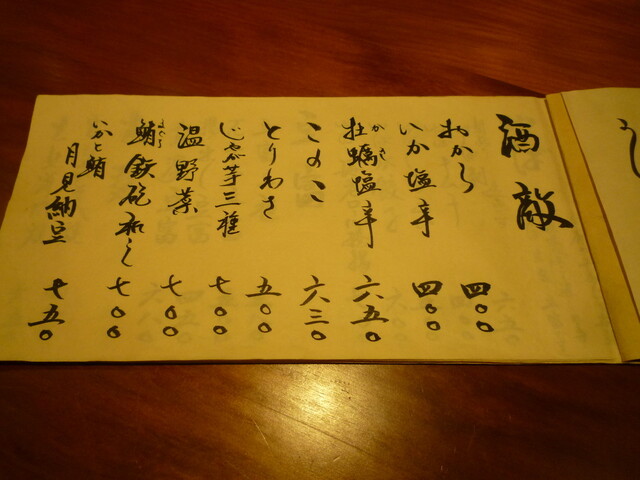 酒敵
おから 四〇〇
いか塩辛 四〇〇
牡蠣塩辛 六五〇
かき
このこ 六三〇
とりわさ 五〇〇
じゃが芋三種 七〇〇
温野菜 七〇〇
鮪鉄砲和え 七〇〇
まぐろ
いかと鮪
月見納豆 七五〇